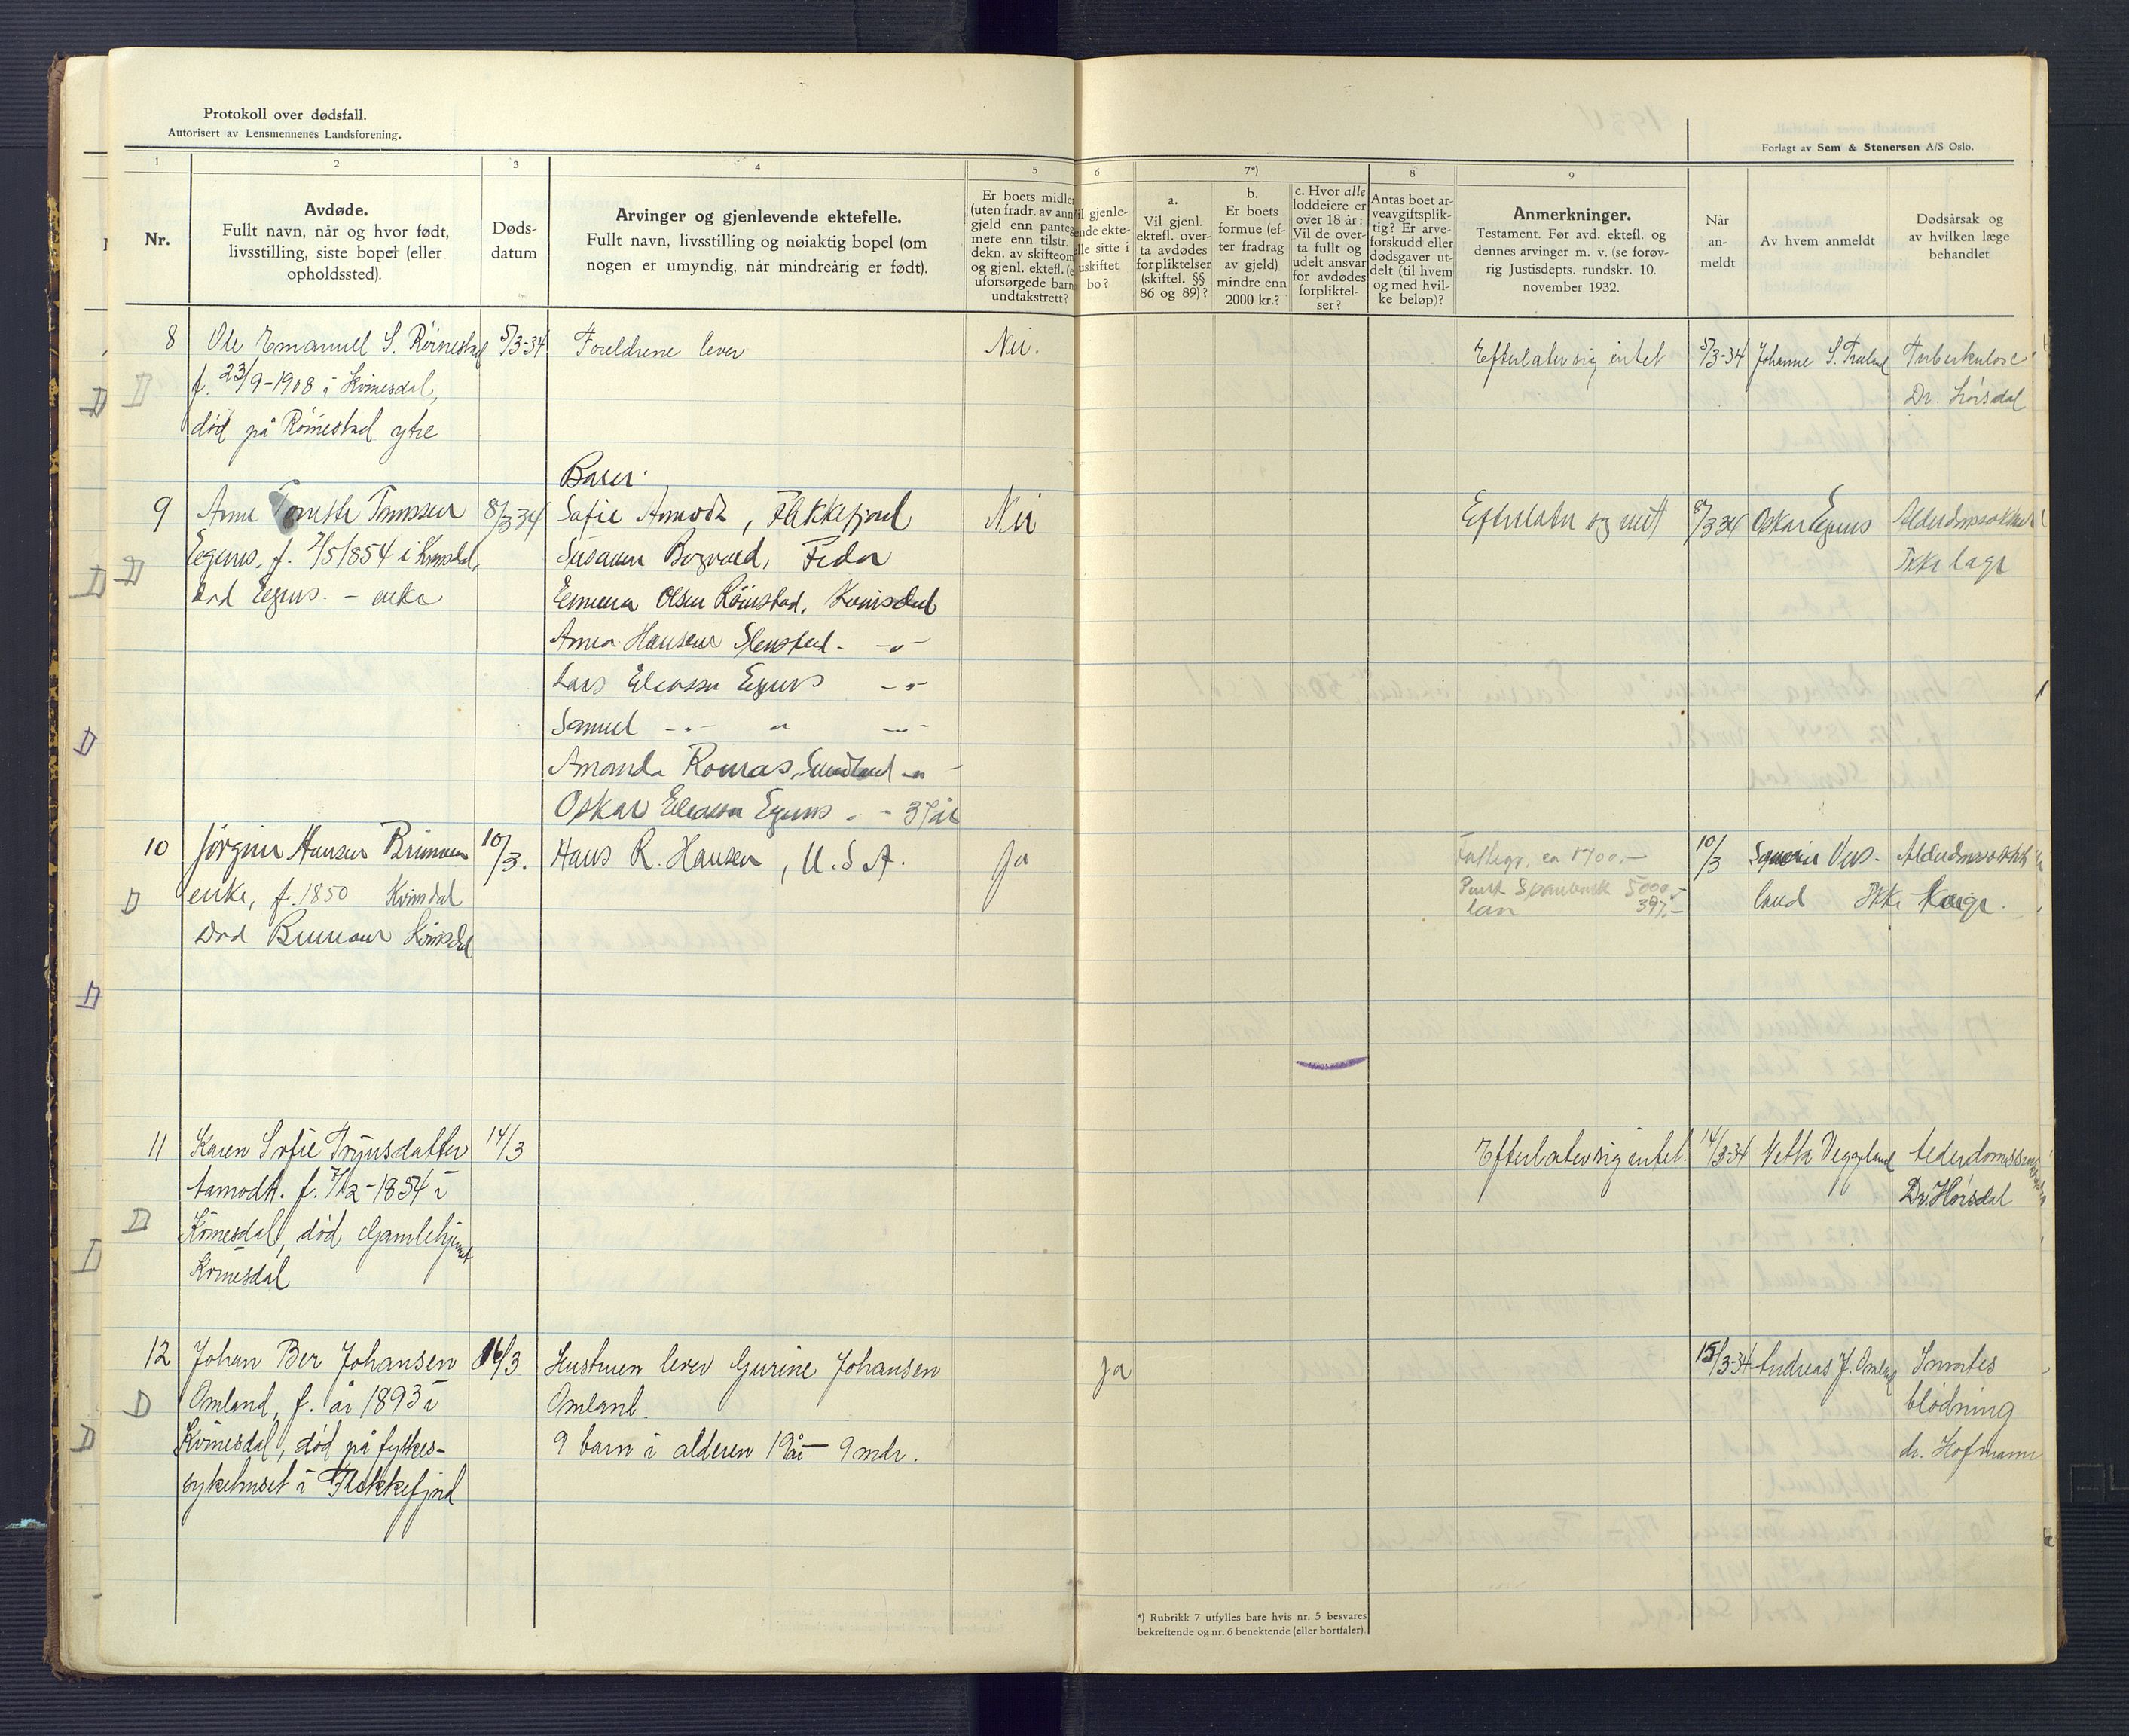 Protokoll over dødsfall.
Autorisert av Lensmennenes Landsforening.
Forlagt av Sem & Stenersen A/S Oslo.
1 2 3 4 5 6 7*) 8 9
Nr.
Avdøde.
Fullt navn, når og hvor født,
livsstilling, siste bopel (eller
opholdssted).
Døds-
datum
Arvinger og gjenlevende ektefelle.
Fullt navn, livsstilling og nøiaktig bopel (om
nogen er umyndig, når mindreårig er født).
Er boets midler
(uten fradr. av ann
gjeld enn panteg
mere enn tilstr.
dekn. av skifteom
og gjenl. ektef. (e
uforsørgede barn
undtakstrett?
il gjenle-
ende ekte-
lle sitte i
uskiftet
bo?
a.
Vil gjenl.
ektefl. over-
ta avdødes
forpliktelser
(skiftel. §§
86 og 89)?
b.
Er boets
formue (ef-
ter fradrag
av gjeld)
mindre enn
2000 kr.?
c. Hvor alle
loddeiere er
over 18 år:
Vil de over-
ta fullt og
udelt ansvar
for avdødes
forpliktel-
ser?
Antas boet ar-
veavgiftsplik-
tig? Er arve-
forskudd eller
dødsgaver ut-
delt (til hvem
og med hvil-
ke beløp)?
Anmerkninger.
Testament. Før avd. ektefl. og
dennes arvinger m. v. (se forøv-
rig Justisdepts. rundskr. 10.
november 1932.
Når
an-
meldt
Av hvem anmeldt
Dødsårsak og
av hvilken læge
behandlet
8 Ole Emanuel S. Röinestad 5/3-34 Foreldrene lever Nei. Efterlater sig intet 5/3-34 Johanne S. Træland Tuberkulose
f. 23/9-1908 i Kvinesdal, Dr. Höisdal
död på Röinestad ytre
Barn:
9 Anne Tomssen 8/3 34 Sofie Aamodt, Flekkefjord Nei Efterlater sig intet 8/3 34 Oskar Egenes
Egenes, f. 7/5 1854 i Kvinesdal, Susanne, Feda Ikke læge
död Egenes. - enke Emma Olsen Röinestad, Kvinesdal
Anna Hansen
Lars Eliassen Egenes
Samuel
Amanda
Oskar Eliassen Egenes
10 Jörgine Hansen 10/3. Hans R. Hansen, U.S.A. Ja ca 1700,- 10/3
enke, f. 1850 Kvinesdal 5000,- Ikke læge.
död Kvinesdal 397,-
11 Karen Sofie 14/3 Efterlater sig intet. 14/3-34 Veggeland
Aamodt. f. 1854 i Dr. Höisdal
Kvinesdal, död Gamlehjemmet
Kvinesdal
12 Johan Ber Johansen 16/3 Hustruen lever Gurine Johansen ja 15/3-34 Andreas J. Omland Invortes
Omland, f. år 1893 i Omland. blödning
Kvinesdal, död på fylkes- 9 barn i alderen 19 år - 9 mdr. dr. Hofmann
sykehuset i Flekkefjord
*) Rubrikk 7 utfylles bare hvis nr. 5 besvares
bekreftende og nr. 6 benektende (eller bortfaler).